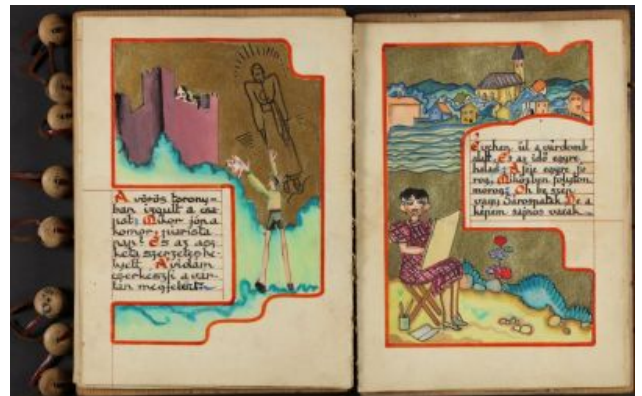 A vörös torony=
ban izgult a csa
pat: Mikor jön a
komor, purista
pap? És az asz
kéta szerzetes he-
lyett, A vidám
cserkészfi a vár-
tán megjelent.
Évchen ül a várdomb
alatt, És az idő egyre
halad; A feje egyre fő
rog, Miközben folyton
morog: Oh be szép
vagy Sárospatak De a
képem sajnos vacak.